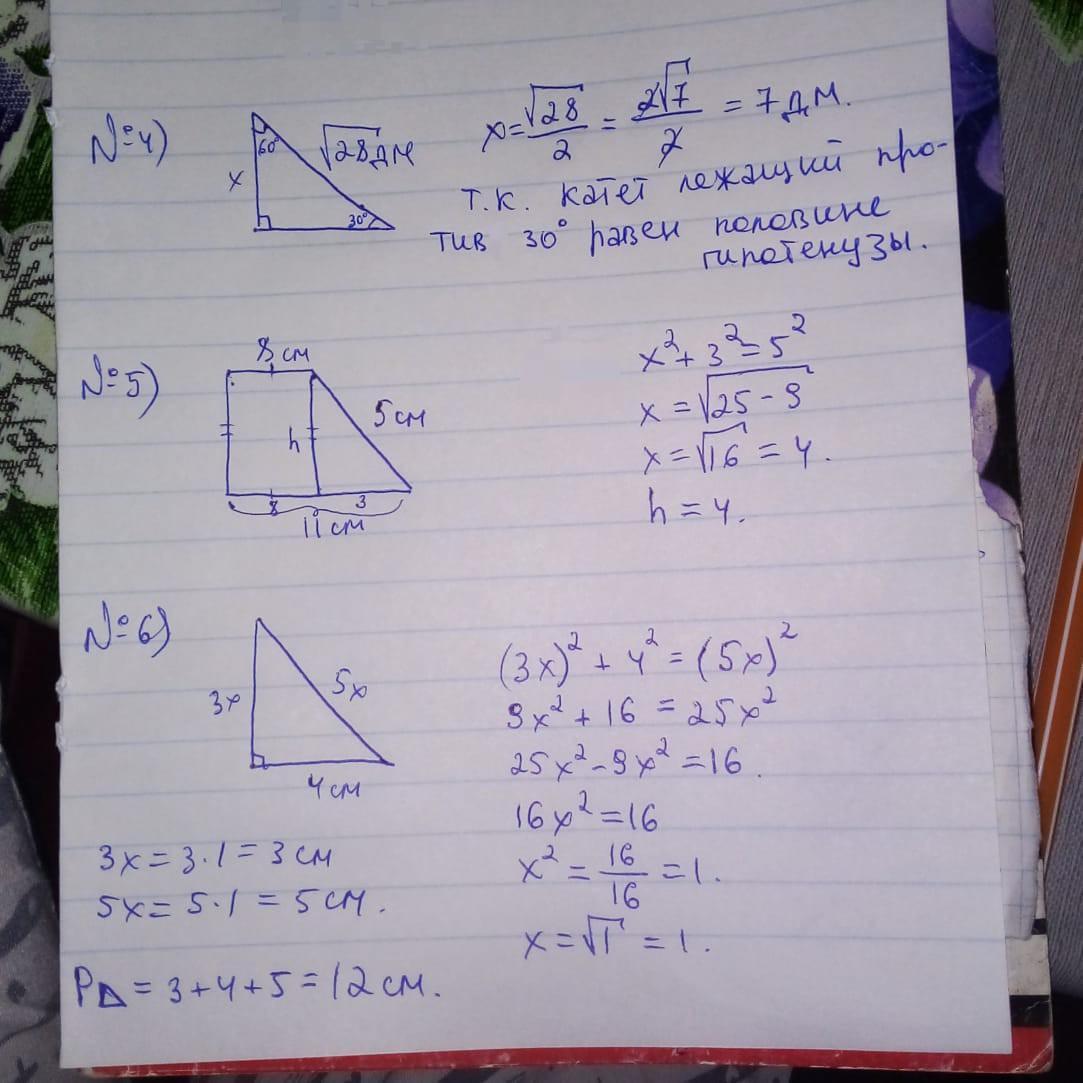 №4)
60°
√28 дм
x
30°
x = √28/2 = 2√7/2 = 7 дм.
т.к. катет лежащий про-
тив 30° равен половине
гипотенузы.
№5)
8 см
5 см
h
8
3
11 см
x² + 3² = 5²
x = √25 - 9
x = √16 = 4.
h = 4.
№6)
3x
5x
4 см
(3x)² + 4² = (5x)²
9x² + 16 = 25x²
25x² - 9x² = 16.
16x² = 16
x² = 16/16 = 1.
x = √1 = 1.
3x = 3·1 = 3 см
5x = 5·1 = 5 см.
P△ = 3+4+5 = 12 см.